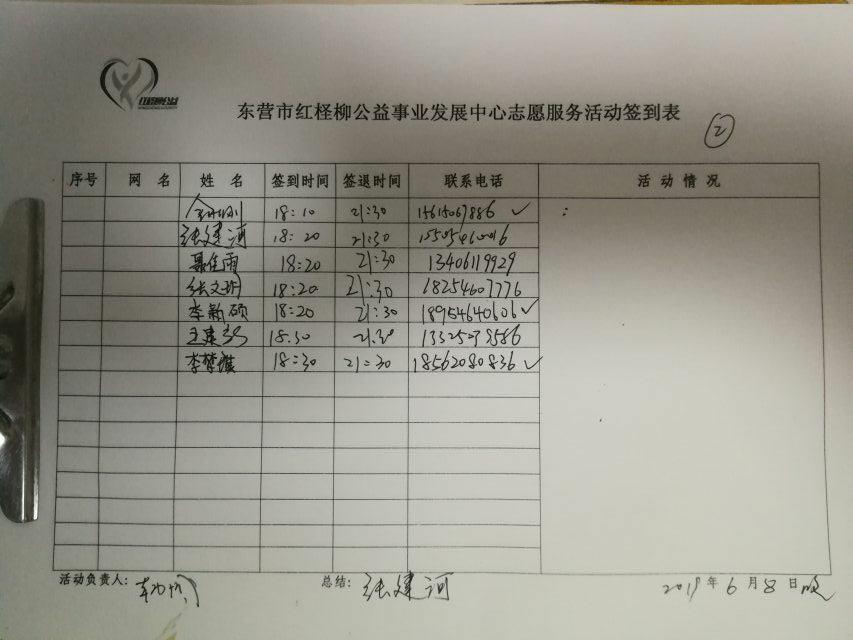 东营市红柽柳公益事业发展中心志愿服务活动签到表
②
序号 网名 姓名 签到时间 签退时间 联系电话 活动情况
18:10 21:30 15615067886 ✓
张建河 18:20 21:30
聂佳雨 18:20 21:30 13406119929
张文玥 18:20 21:30 18254607776
李颖硕 18:20 21:30 18954640606 ✓
18:30 21:30
李梦媛 18:30 21:30 18562080836 ✓
活动负责人: 总结: 张建河 2019年6月8日晚